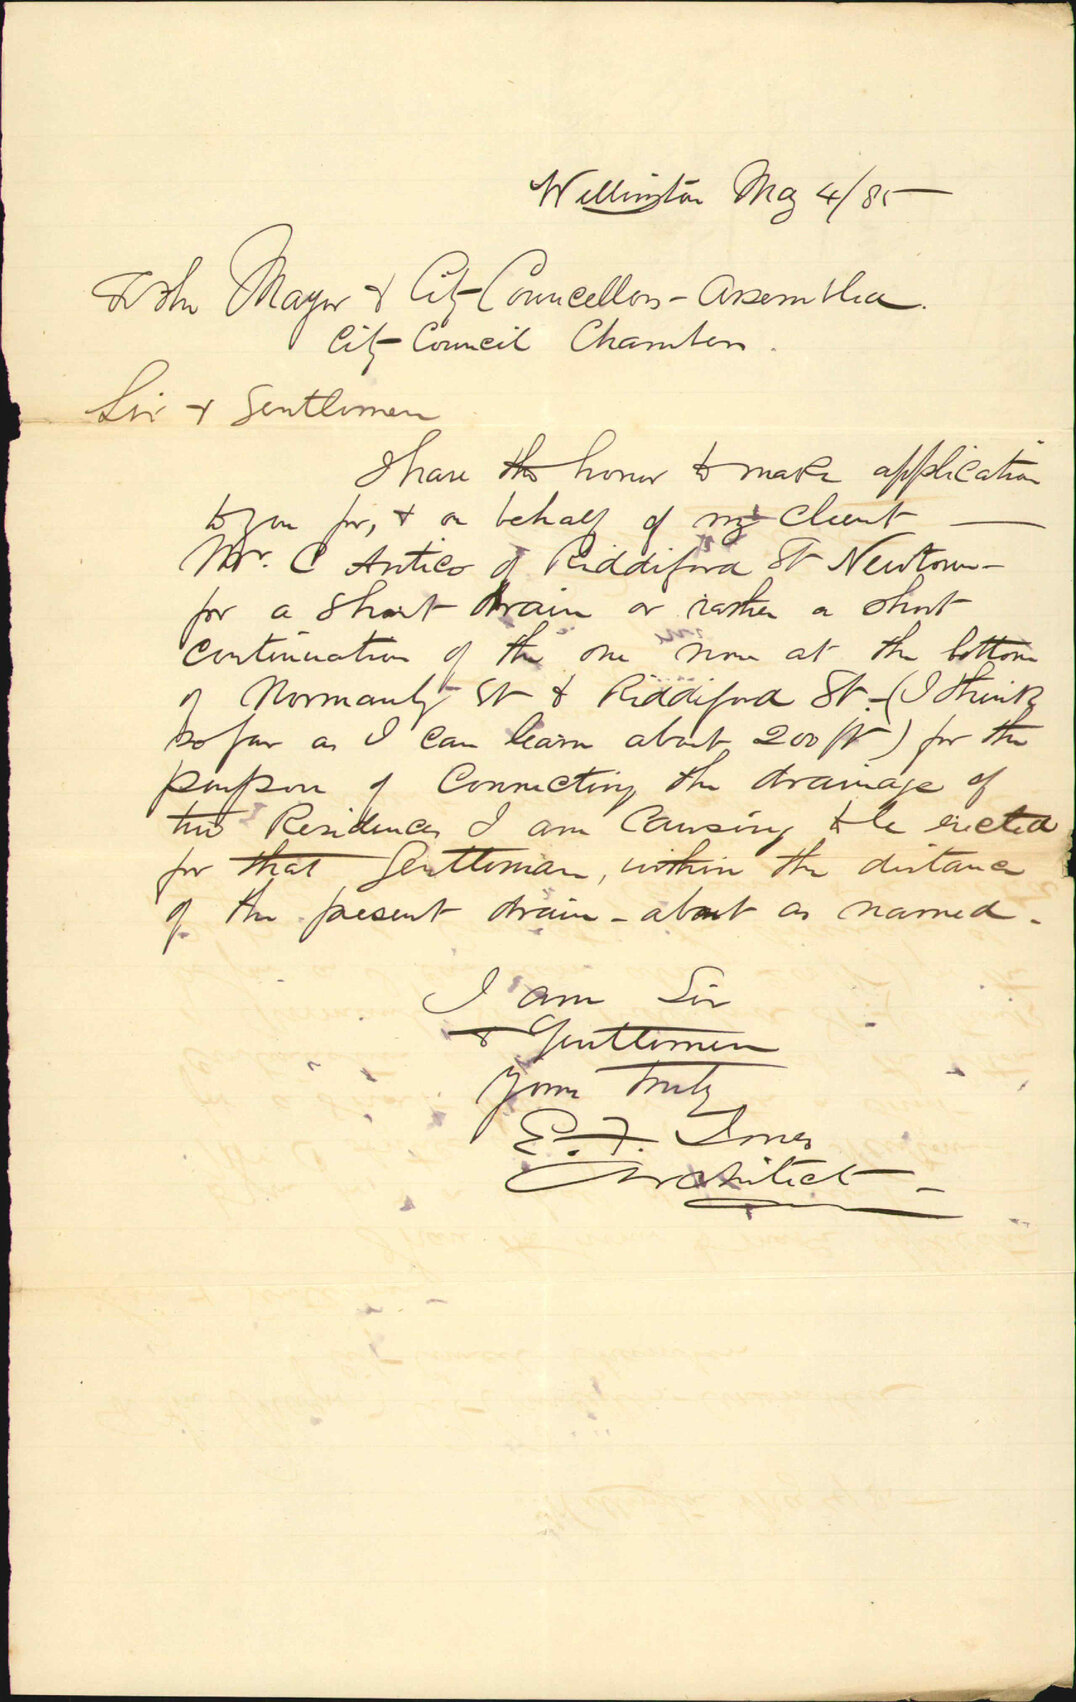 Wellington May 4/85
To the Mayor & City Councellors - Assembled.
City Council Chambers.
Sir & Gentlemen
I have the honor to make application
to you for, & on behalf of my client
Mr. C Antico of Riddiford St Newtown -
for a short drain or rather a short
continuation of the one now at the bottom
of Normanby St & Riddiford St. - (I think
so far as I can learn about 200 ft) for the
purpose of connecting the drainage of
two Residences I am causing to be erected
for that Gentleman, within the distance
of the present drain - about as named -
I am Sir
& Gentlemen
Yours truly
E. F. Jones
Architect -